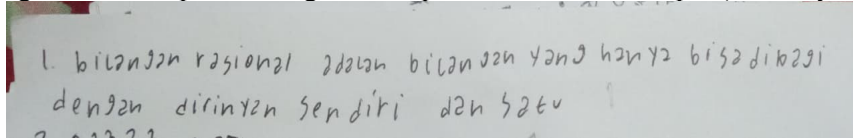 1. bilangan rasional adalah bilangan yang hanya bisa dibagi
dengan dirinyan sendiri dan satu